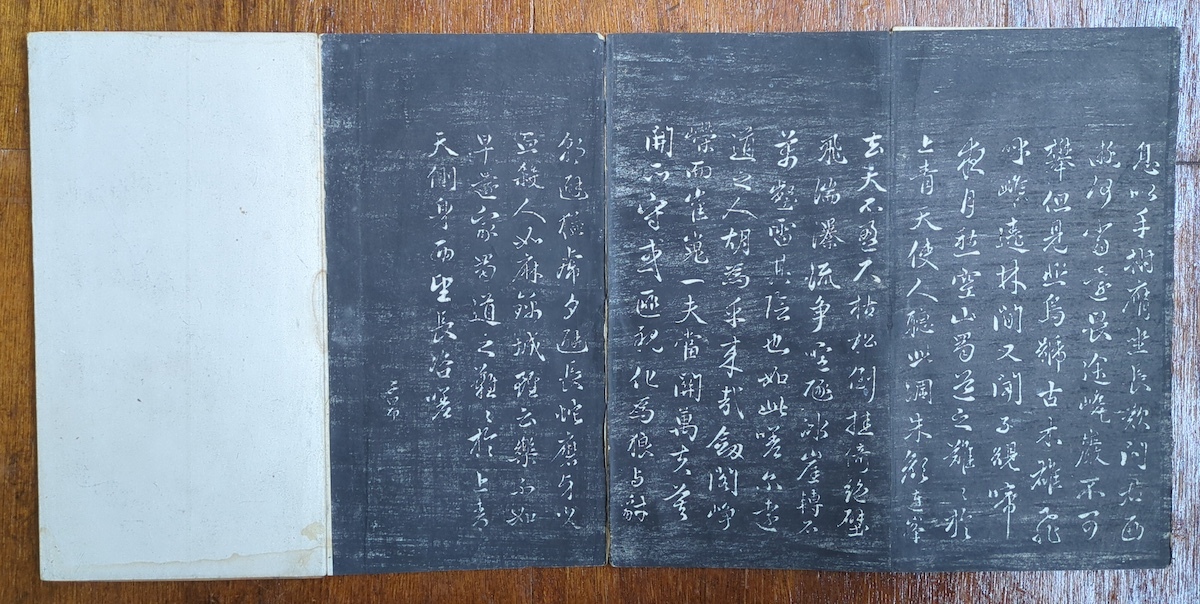 息以手撫膺坐長歎問君西
遊何當還畏途巉巖不可
攀但見悲鳥號古木雄飛
呼雌遶林間又聞子規啼
夜月愁空山蜀道之難〻於
上青天使人聽此凋朱顏連峯
去天不盈尺枯松倒挂倚絕壁
飛湍瀑流爭喧豗砯崖轉石
萬壑雷其險也如此嗟爾遠
道之人胡為乎來哉劍閣崢
嶸而崔嵬一夫當關萬夫莫
開所守或匪親化為狼與豺
朝避猛虎夕避長蛇磨牙吮
血殺人如麻錦城雖云樂不如
早還家蜀道之難〻於上青
天側身西望長咨嗟